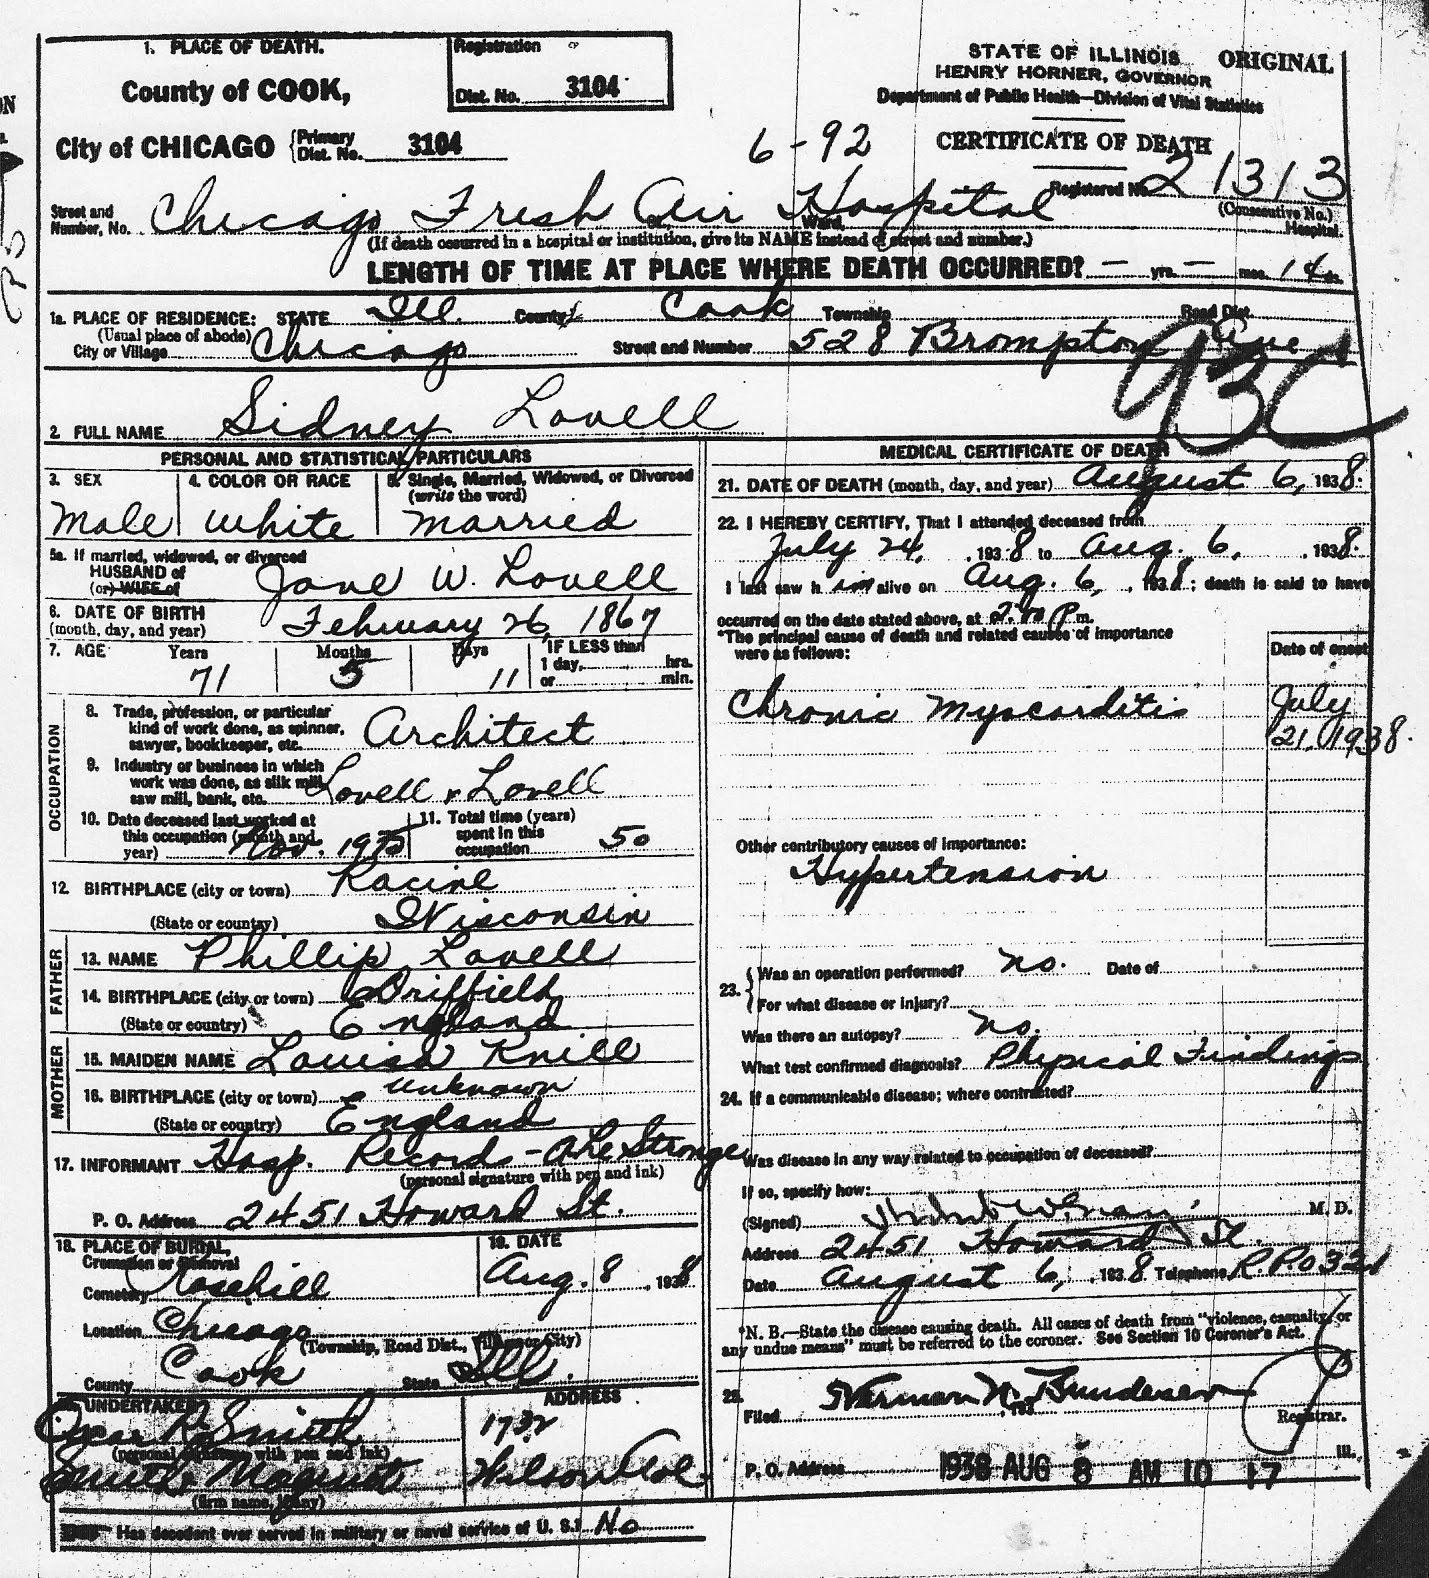 1. PLACE OF DEATH.
County of COOK,
City of CHICAGO {Primary Dist. No. 3104
Registration
Dist. No. 3104
STATE OF ILLINOIS ORIGINAL
HENRY HORNER, GOVERNOR
Department of Public Health—Division of Vital Statistics
CERTIFICATE OF DEATH
6-92
Registered No. 21313
(Consecutive No.)
Street and Number, No. Chicago Fresh Air Hospital Ward, Hospital.
(If death occurred in a hospital or institution, give its NAME instead of street and number.)
LENGTH OF TIME AT PLACE WHERE DEATH OCCURRED? — yrs. — mos. 14 ds.
1a. PLACE OF RESIDENCE: STATE Ill. County Cook Township Road Dist.
(Usual place of abode)
City or Village Chicago Street and Number 528 Brompton Ave
93C
2. FULL NAME Sidney Lovell
PERSONAL AND STATISTICAL PARTICULARS
3. SEX Male
4. COLOR OR RACE White
5. Single, Married, Widowed, or Divorced (write the word) Married
5a. If married, widowed, or divorced
HUSBAND of
(or) WIFE of Jane W. Lovell
6. DATE OF BIRTH
(month, day, and year) February 26, 1867
7. AGE Years 71 Months 5 Days 11 IF LESS than 1 day, hrs. or min.
OCCUPATION
8. Trade, profession, or particular
kind of work done, as spinner,
sawyer, bookkeeper, etc. Architect
9. Industry or business in which
work was done, as silk mill,
saw mill, bank, etc. Lovell & Lovell
10. Date deceased last worked at
this occupation (month and
year) Nov. 1935
11. Total time (years)
spent in this
occupation 50
12. BIRTHPLACE (city or town) Racine
(State or country) Wisconsin
FATHER
13. NAME Phillip Lovell
14. BIRTHPLACE (city or town) Driffield
(State or country) England
MOTHER
15. MAIDEN NAME Louisa Knill
16. BIRTHPLACE (city or town) unknown
(State or country) England
17. INFORMANT Hosp. Records -
(personal signature with pen and ink)
P. O. Address 2451 Howard St.
18. PLACE OF BURIAL,
Cremation or Removal
Cemetery Rosehill
19. DATE
Aug. 8, 1938
Location Chicago
(Township, Road Dist., Village or City)
County Cook State Ill.
20. UNDERTAKER
R. Smith
(personal signature with pen and ink)
Smith
(firm name, if any)
ADDRESS
1732
Wilson Ave.
Has decedent ever served in military or naval service of U. S.? No
MEDICAL CERTIFICATE OF DEATH
21. DATE OF DEATH (month, day, and year) August 6, 1938.
22. I HEREBY CERTIFY, That I attended deceased from
July 24, 1938 to Aug. 6, 1938.
I last saw him alive on Aug. 6, 1938; death is said to have
occurred on the date stated above, at P m.
*The principal cause of death and related causes of importance
were as follows:
Date of onset
Chronic Myocarditis July
21, 1938.
Other contributory causes of importance:
Hypertension
23. {Was an operation performed? no. Date of
For what disease or injury?
Was there an autopsy? no.
What test confirmed diagnosis? Physical Findings
24. If a communicable disease; where contracted?
Was disease in any way related to occupation of deceased?
If so, specify how:
(Signed) M. D.
Address 2451 Howard St.
Date August 6, 1938 Telephone
*N. B.—State the disease causing death. All cases of death from "violence, casualty, or
any undue means" must be referred to the coroner. See Section 10 Coroner's Act.
25.
Filed Herman N. Bundesen
, 193
Registrar.
P. O. Address 1938 AUG 8 AM 10 17 Ill.